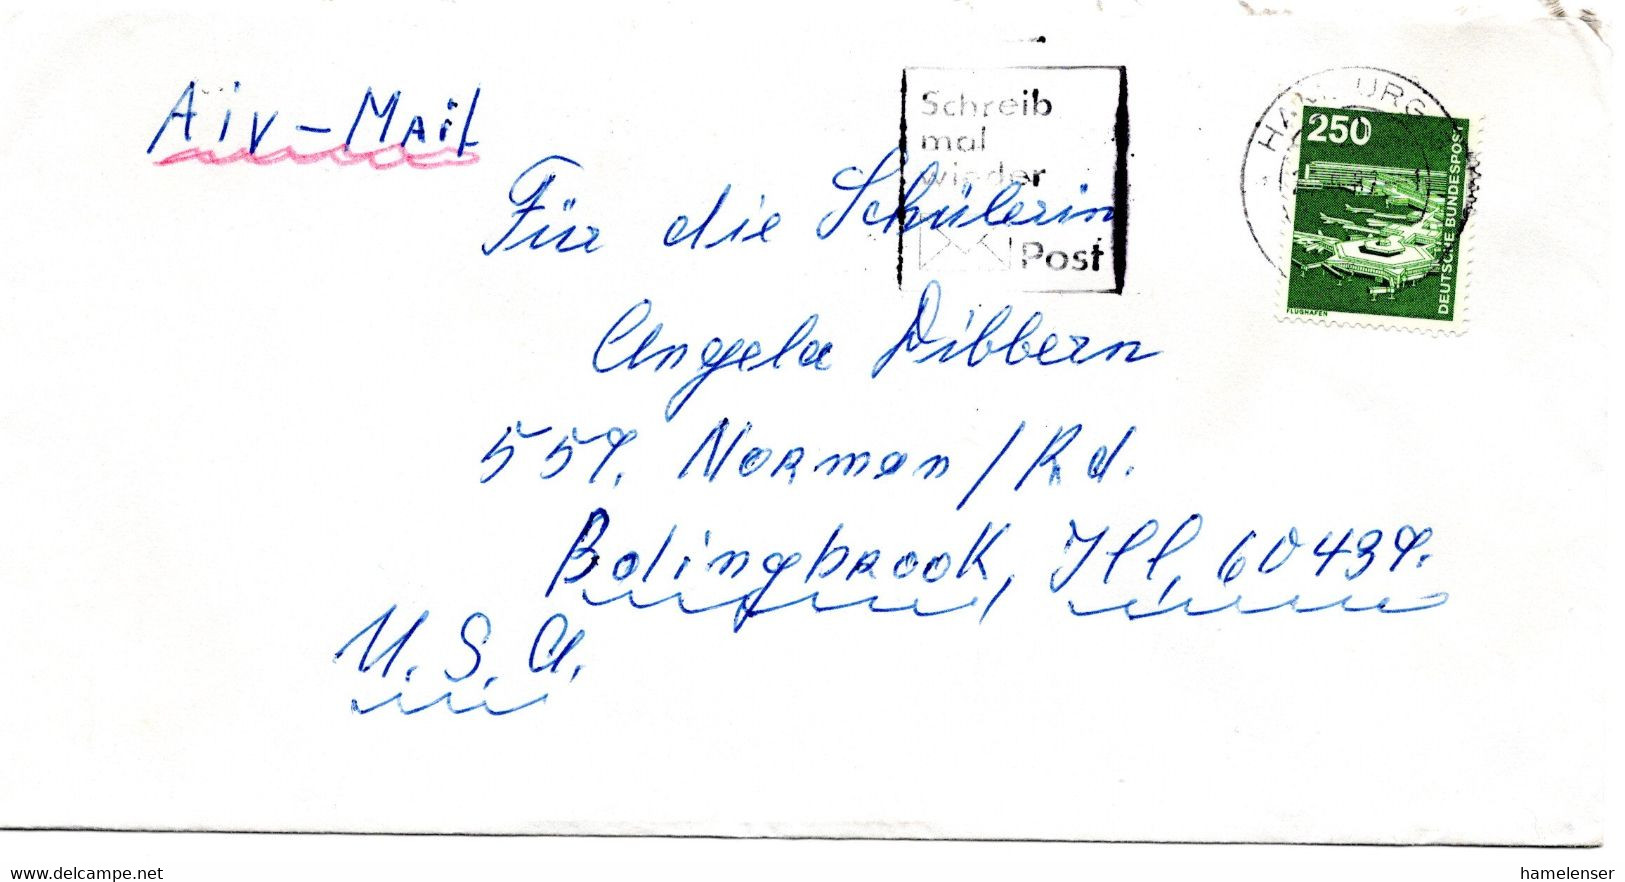 Air-Mail
Schreib
mal
wieder
Post
HAMBURG
250
DEUTSCHE BUNDESPOST
FLUGHAFEN
Für die Schülerin
Angela Dibbern
559, Norman/Rd.
Bolingbrook, Ill, 60439.
U.S.A.
www.delcampe.net
hamelenser